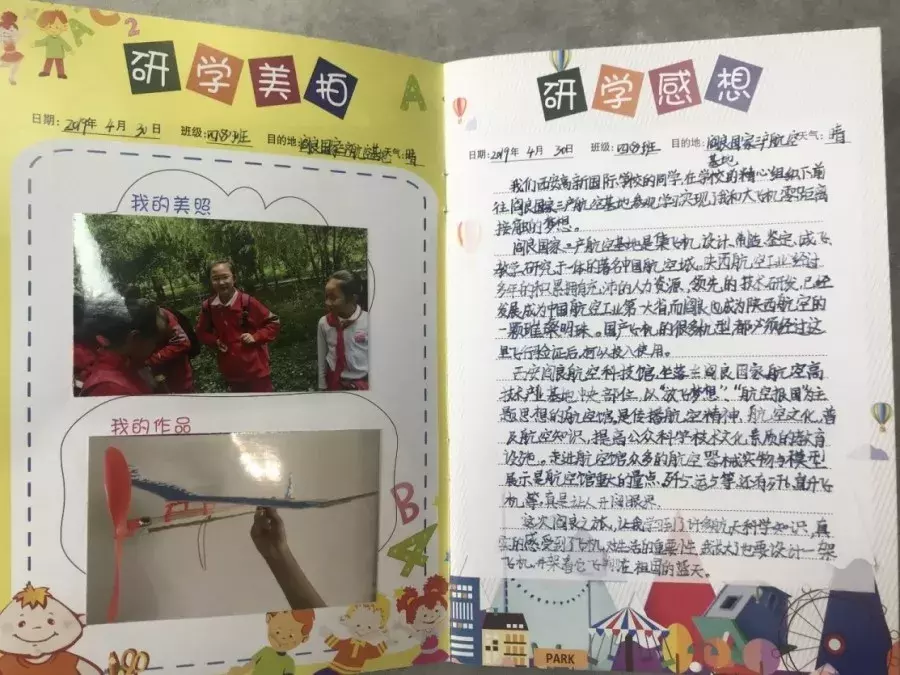 研学美拍
日期：2019年4月30日 班级：四(3)班 目的地：阎良国家航空基地 天气：晴
我的美照
我的作品
研学感想
日期：2019年4月30日 班级：四(3)班 目的地：阎良国家航空基地 天气：晴
我们西安高新国际学校的同学，在学校的精心组织下前
往阎良国家航空基地参观学习，实现了我和大飞机零距离
接触的梦想。
阎良国家航空基地是集飞机设计、制造、鉴定、
教学、研究于一体的著名中国航空城。陕西航空工业经过
多年的积累拥有充沛的人力资源、领先的技术研发，已经
发展成为中国航空工业第一大省，而阎良也成为陕西航空的
一颗璀璨明珠。国产飞机的很多机型，都必须经过这
里飞行验证后，才可以投入使用。
西安阎良航空科技馆，坐落在阎良国家航空高
技术产业基地中央部位，以"放飞梦想"、"航空报国"为主
题思想的航空馆，是传播航空精神、航空文化，普
及航空知识，提高公众科学技术文化素质的教育
设施。走进航空馆众多的航空器械实物与模型
展示是航空馆重大的量点，歼六、运七等，还有歼飞、直升飞
机等，真是让人开阔眼界。
这次阎良之旅，让我学到了许多航天科学知识，真
实的感受到了飞机对生活的重要性，我长大了也要设计一架
飞机，并驾着它飞翔在祖国的蓝天。
PARK